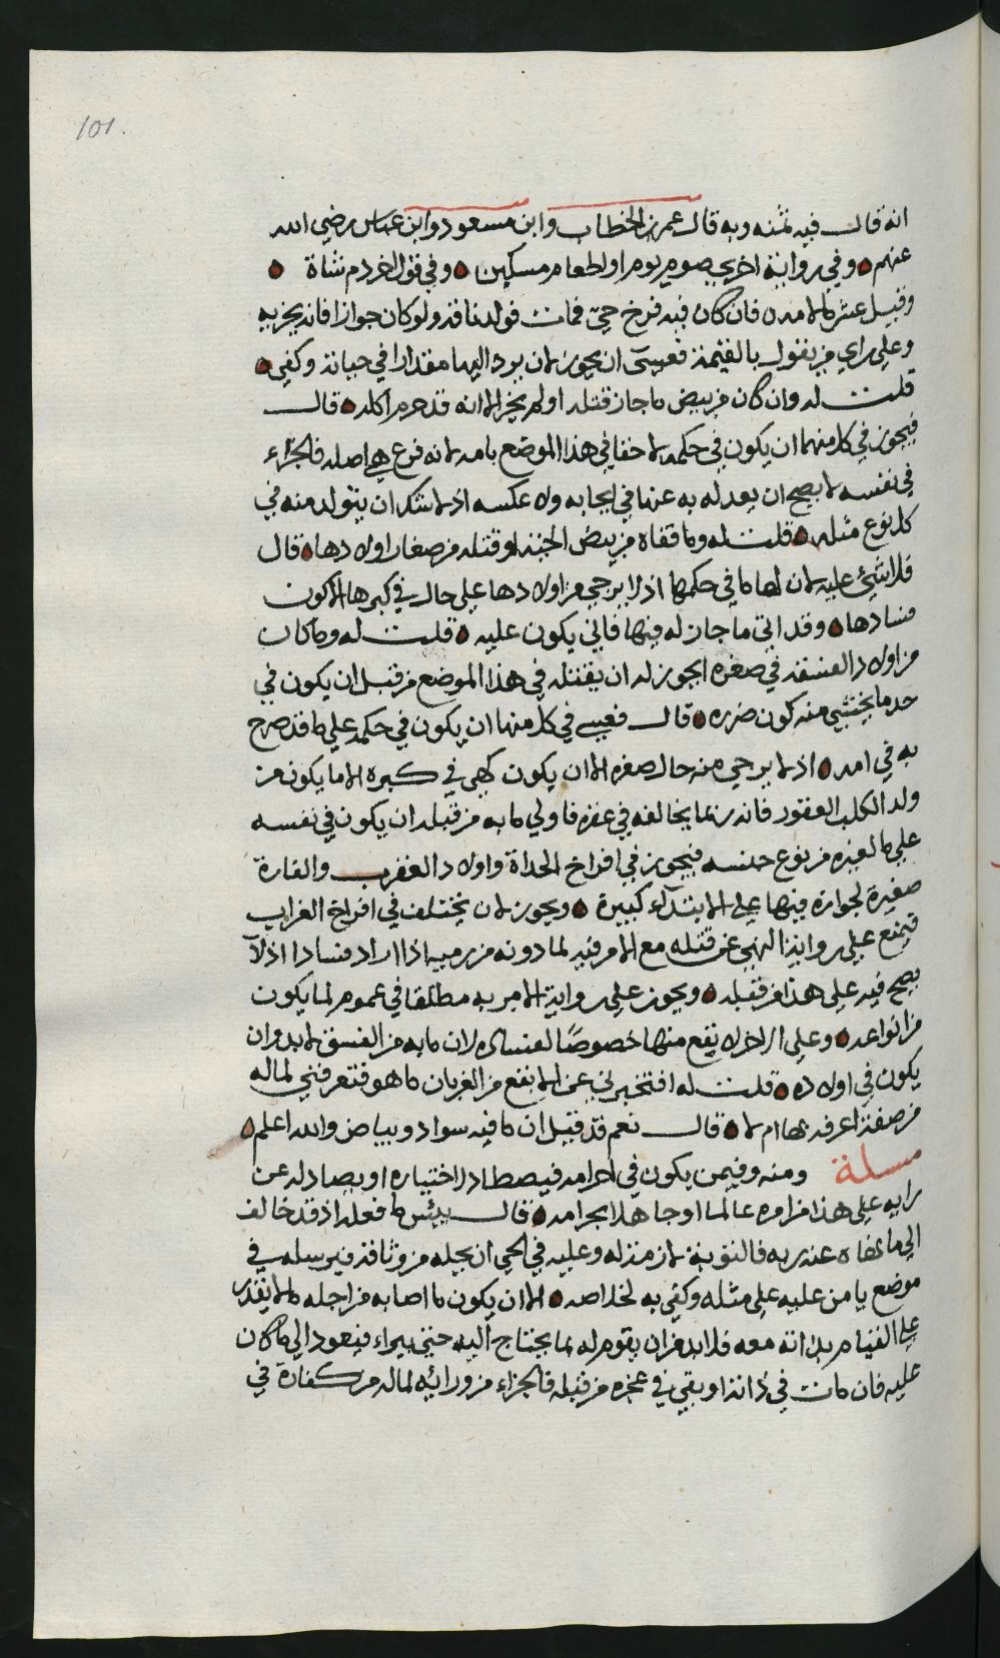 101.
انه قال فيه ثمنه وبه قال عمر بن الخطاب وابن مسعود وابن عباس رضي الله
عنهم وفي رواية اخري صوم يوم او اطعام مسكين وفي قول اخر دم شاة
وقيل عشر الامه فان كان فيه فرخ حي فمات فولد ناقة ولو كان جوازا فانه يجزيه
وعلي راي من يقول بالقيمة فعسي ان يجوز لان يرد اليها مقدارا في حياته وكفي
قلت له وان كان من بيض ما جاز قتله او لم يجز الا انه قد حرم اكله قال
فيجوز في كل منهما ان يكون في حكمه لاحقا في هذا الموضع بامه لانه فرع هي اصله فالجزاء
في نفسه لا يصح ان يعدله به عنها في ايجابه ولا عكسه اذ لا شك ان يتولد منه في
كل نوع مثله قلت له وما فقاه من بيض الحية او قتله من صغار اولادها قال
فلا شيء عليه لان لها ما في حكمها اذ لا يرجي من اولادها علي حال في كبرها الا كون
فسادها وقد اتي ما جاز له فيها فاني يكون عليه قلت له وما كان
من اولاد الفسقة في صغره ايجوز له ان يقتله في هذا الموضع من قبل ان يكون في
حد ما يختشي منه كون ضرره قال فعسي في كل منها ان يكون في حكمه علي ما قد صرح
به في امه اذ لا يرجي منه حال صغره الا ان يكون كهي في كبره الا ما يكون من
ولد الكلب العقور فانه ربما يخالفه في عقره فاولي ما به من قبله ان يكون في نفسه
علي ما لغيره من نوع جنسه فيجوز في افراخ الحداة واولاد العقرب والفارة
صغيرة لجوازه فيها علي الابتداء كبيرة ويجوز لان يختلف في افراخ الغراب
فيمنع علي رواية النهي عن قتله مع الامر فيه لما دونه من رميه اذا اراد فسادا اذ لا
يصح فيه علي هذا من قتله ويجوز علي رواية الامر به مطلقا في عموم لما يكون
من انواعه وعلي الاخر لا يقع منها خصوصا لفساده لان ما به من الفسق لابد وان
يكون في اولاده قلت له افتخبرني عن الابقع من الغربان ما هو فتعرفني لما له
من صفة اعرفه بها ام لا قال نعم قد قيل ان ما فيه سواد وبياض والله اعلم
مسلة ومنه وفيمن يكون في احرامه فيصطاد لاختياره او يصاد له عن
رايه علي هذا من امره عالما او جاهلا بحرامه قال بيئس ما فعله اذ قد خالف
الي ما نهاه عنه ربه فالتوبة لازمة له وعليه في الحي ان يحله من وثاقه فيرسله في
موضع يامن عليه علي مثله وكفي به لخلاصه الا ان يكون ما اصابه من اجله مالا يقدر
علي القيام بذاته معه فلابد من ان يقوم له بما يحتاج اليه حتي يبراء فيعود الي ما كان
عليه فان مات في ذاته او بقي في عجزه من قبله فالجزاء من ورائه لما له من كفارة في